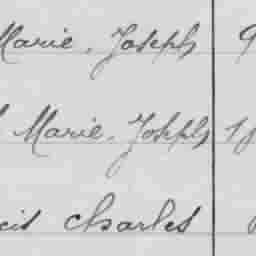 Marie. Joseph 9
Marie. Joseph 18
cis Charles